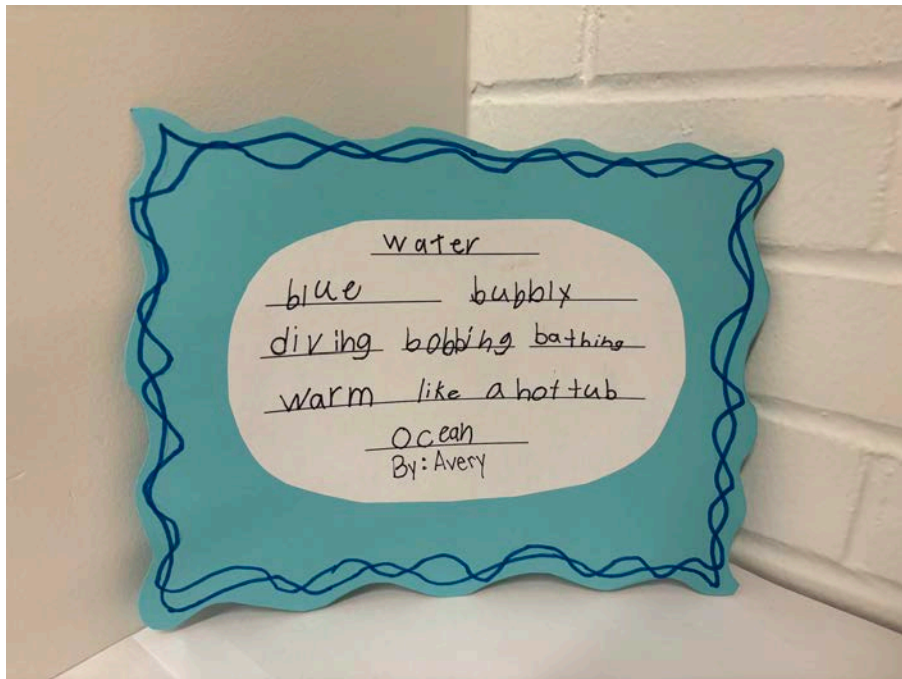 water
blue bubbly
diving bobbing bathing
warm like a hot tub
Ocean
By: Avery